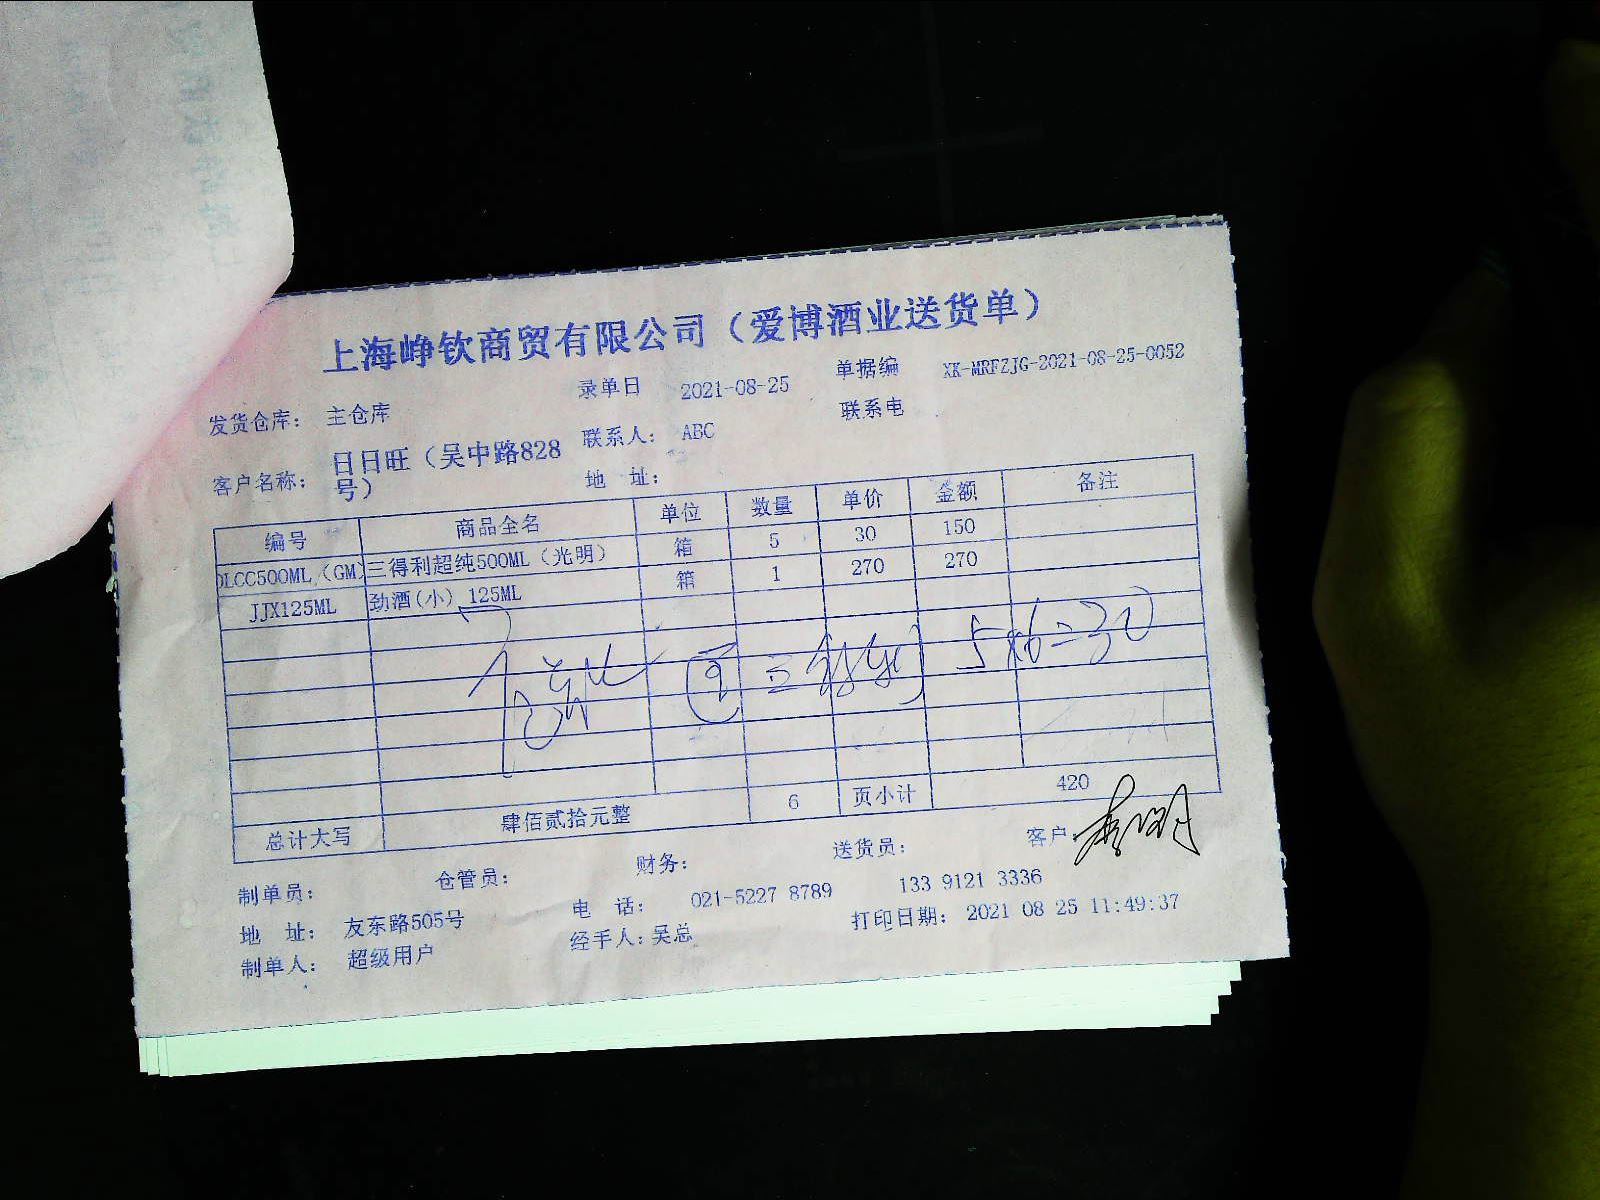 上海峥钦商贸有限公司（爱博酒业送货单）
录单日 2021-08-25 单据编 XK-MRFZJG-2021-08-25-0052
发货仓库： 主仓库 联系人： ABC 联系电
客户名称： 日日旺（吴中路828号） 地 址：
编号 商品全名 单位 数量 单价 金额 备注
OLCC500ML（GM） 三得利超纯500ML（光明） 箱 5 30 150
JJX125ML 劲酒(小) 125ML 箱 1 270 270
5×6=30
总计大写 肆佰贰拾元整 6 页小计 420
制单员： 仓管员： 财务： 送货员： 客户
地 址： 友东路505号 电 话： 021-5227 8789 133 9121 3336
制单人： 超级用户 经手人：吴总 打印日期： 2021 08 25 11:49:37